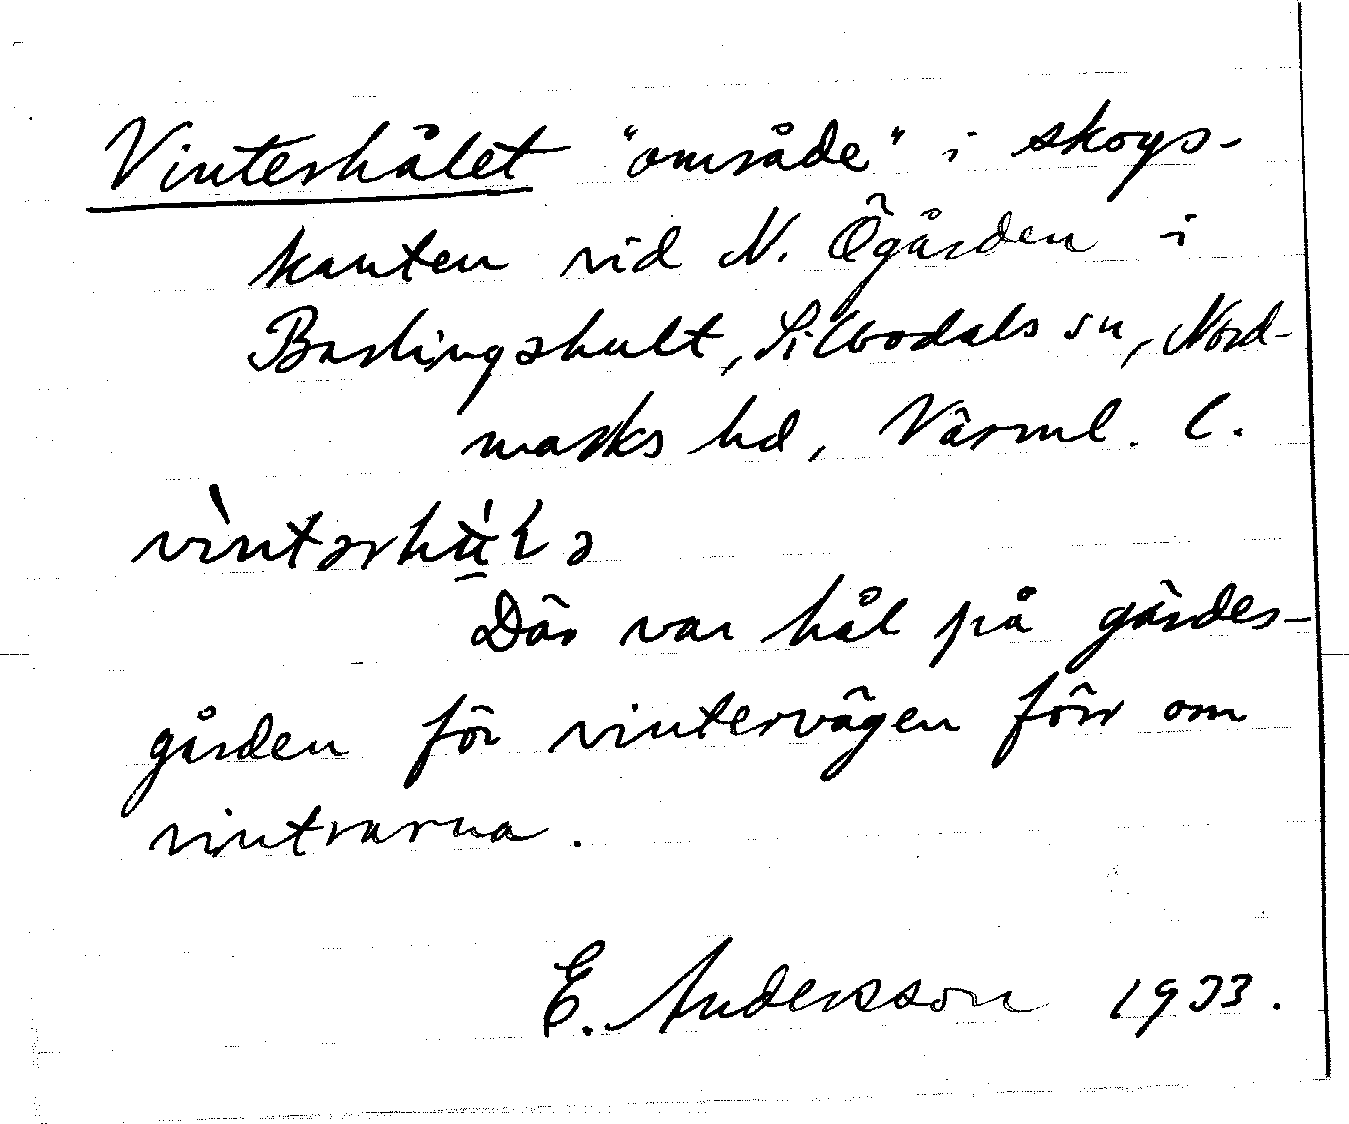 Vinterhålet "område" i skogs-
kanten vid N. Ögården i
Barlingshult, Silbodals sn, Nord-
marks hd, Värml. l.
Där var hål på gärdes-
gården för vintervägen förr om
vintrarna.
E. Andersson 1933.